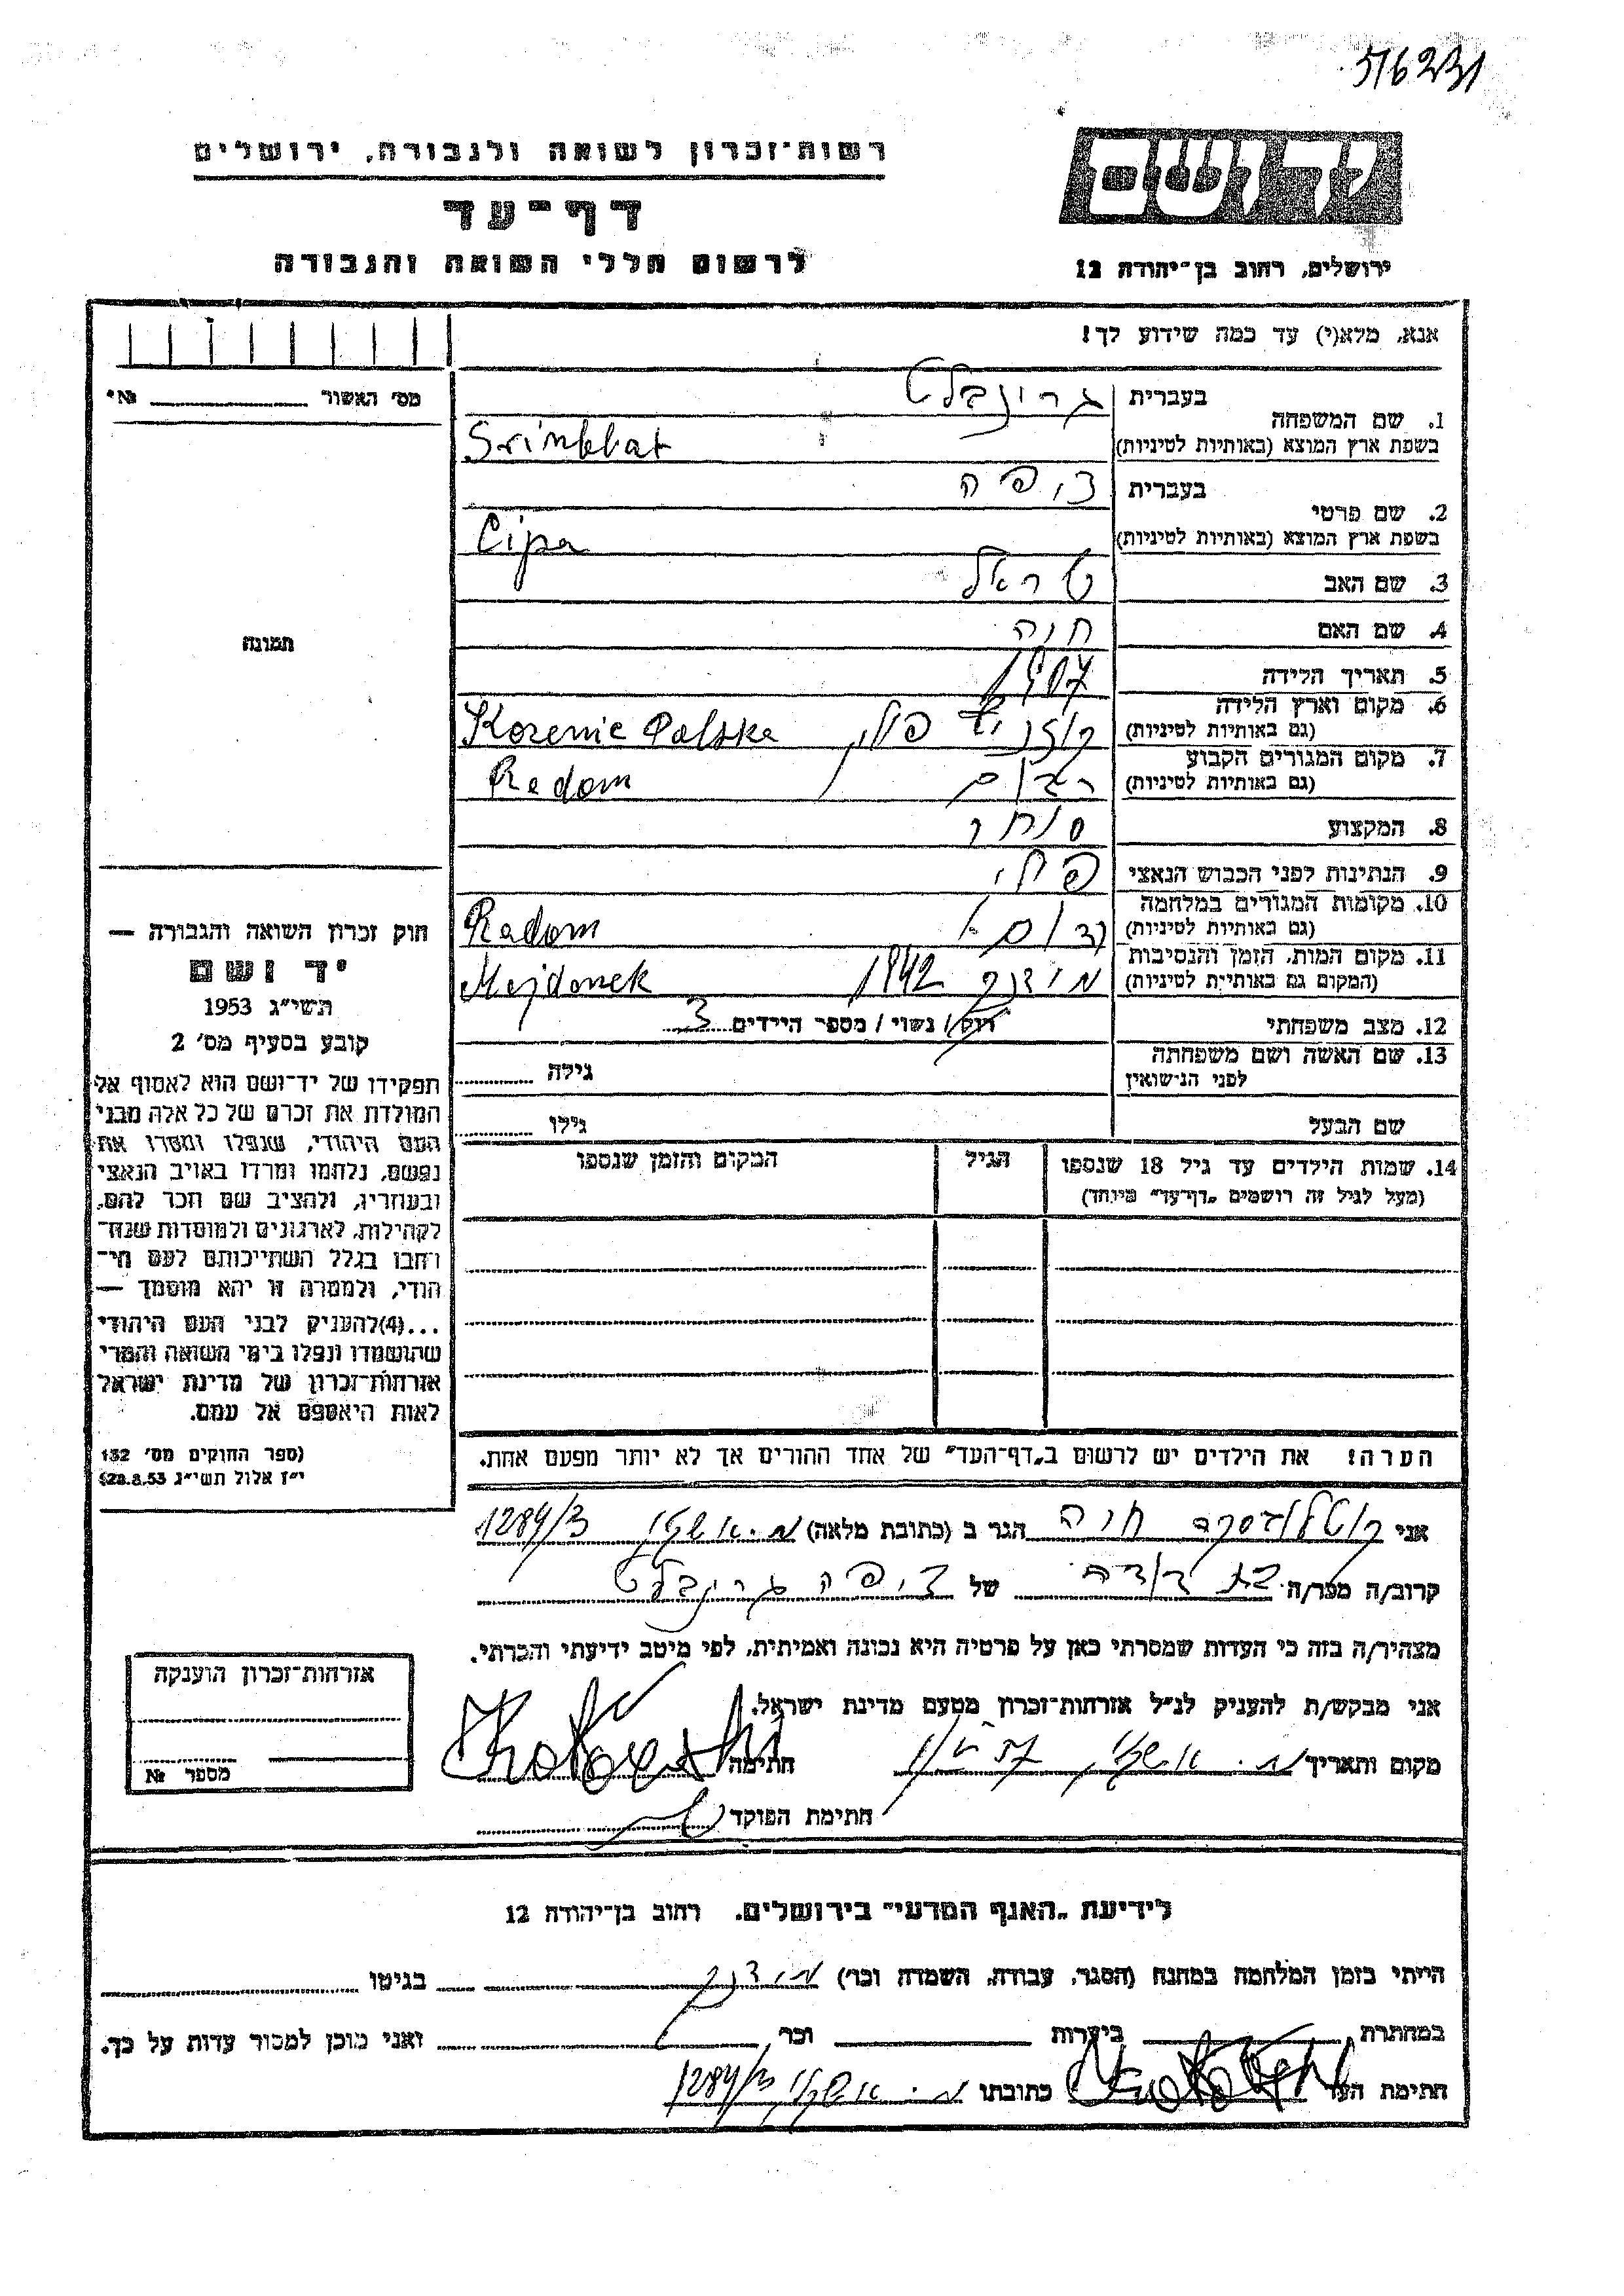 516231
רשות־זכרון לשואה ולגבורה, ירושלים
דף־עד
לרשום חללי השואה והגבורה
ירושלים, רחוב בן־יהודה 12
אנא, מלא(י) עד כמה שידוע לך!
מס' האשור № 
1. שם המשפחה
בעברית גרינבלט
בשפת ארץ המוצא (באותיות לטיניות) Srinblat
2. שם פרטי
בעברית ציפה
בשפת ארץ המוצא (באותיות לטיניות) Cipa
3. שם האב
4. שם האם חוה
5. תאריך הלידה 1907
6. מקום וארץ הלידה
(גם באותיות לטיניות) קוזניץ פולי Kozenic Polska
7. מקום המגורים הקבוע
(גם באותיות לטיניות) רדום Radom
8. המקצוע סוחר
9. הנתינות לפני הכבוש הנאצי פולי
10. מקומות המגורים במלחמה
(גם באותיות לטיניות) רדום Radom
11. מקום המות, הזמן והנסיבות
(המקום גם באותיות לטיניות) מידנק 1942 Majdanek
12. מצב משפחתי רווק / נשוי / מספר הילדים 3
13. שם האשה ושם משפחתה
לפני הנישואין גילה
שם הבעל גילו
14. שמות הילדים עד גיל 18 שנספו הגיל המקום והזמן שנספו
(מעל לגיל זה רושמים „דף־עד״ מיוחד)
הערה! את הילדים יש לרשום ב„דף־העד״ של אחד ההורים אך לא יותר מפעם אחת.
תמונה
חוק זכרון השואה והגבורה —
יד ושם
תשי״ג 1953
קובע בסעיף מס' 2
תפקידו של יד־ושם הוא לאסוף אל
המולדת את זכרם של כל אלה מבני
העם היהודי, שנפלו ומסרו את
נפשם, נלחמו ומרדו באויב הנאצי
ובעוזריו, ולהציב שם וזכר להם,
לקהילות, לארגונים ולמוסדות שנח־
רבו בגלל השתייכותם לעם הי־
הודי, ולמטרה זו יהא מוסמך —
...(4)להעניק לבני העם היהודי
שהושמדו ונפלו בימי השואה והמרי
אזרחות־זכרון של מדינת ישראל
לאות היאספם אל עמם.
(ספר החוקים מס' 132
י״ז אלול תשי״ג 28.8.53)
אני חוה הגר ב (כתובת מלאה) 1284/3
קרוב/ה מכר/ה בת דודה של ציפה גרינבלט
מצהיר/ה בזה כי העדות שמסרתי כאן על פרטיה היא נכונה ואמיתית, לפי מיטב ידיעתי והכרתי.
אני מבקש/ת להעניק לנ״ל אזרחות־זכרון מטעם מדינת ישראל.
מקום ותאריך חתימה
חתימת הפוקד
אזרחות־זכרון הוענקה
מספר №
לידיעת „האגף המדעי״ בירושלים, רחוב בן־יהודה 12
הייתי בזמן המלחמה במחנה (הסגר, עבודה, השמדה וכו') מידנק בגיטו
במחתרת ביערות וכו' ואני מוכן למסור עדות על כך.
חתימת העד כתובתו 1284/3